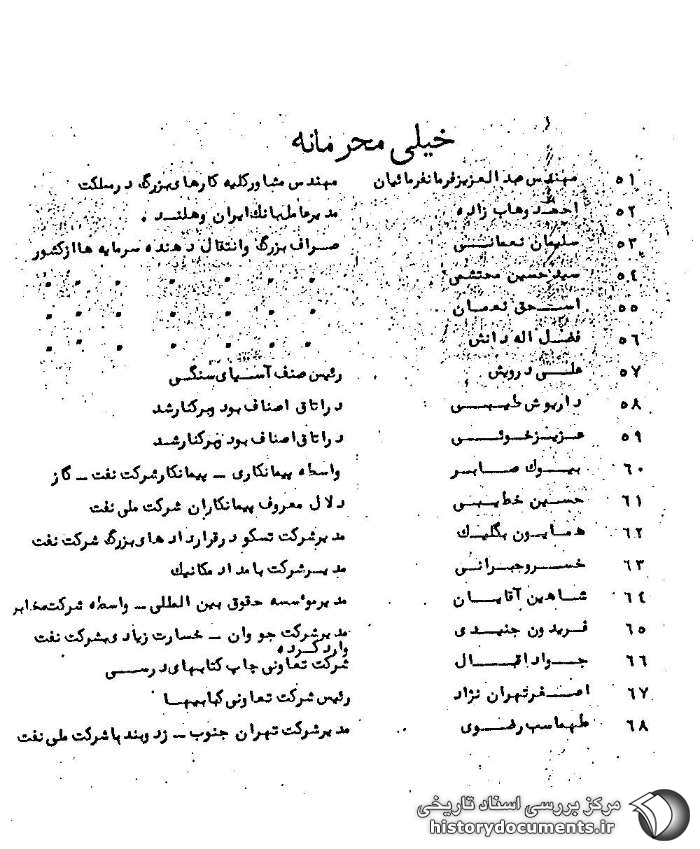 خیلی محرمانه
۵۱ مهندس عبدالعزیز فرمانفرمائیان مهندس مشاور کلیه کارهای بزرگ در مملکت
۵۲ احمد وهاب زاده مدیرعامل بانک ایران و هلند .
۵۳ سلیمان نعمانی صراف بزرگ و انتقال دهنده سرمایه ها از کشور
۵۴ سید حسین محتشمی " " " " " "
۵۵ اسحق نعمان " " " " " "
۵۶ فضل اله دانش " " " " " "
۵۷ علی درویش رئیس صنف آسیای سنگی
۵۸ داریوش طبیبی در اتاق اصناف بود و برکنار شد
۵۹ عزیز خوئی در اتاق اصناف بود و برکنار شد
۶۰ بیوک صابر واسطه پیمانکاری – پیمانکار شرکت نفت – گاز
۶۱ حسین خطیبی دلال معروف پیمانکاران شرکت ملی نفت
۶۲ همایون بگلیک مدیر شرکت تسکو در قراردادهای بزرگ شرکت نفت
۶۳ خسرو جبرانی مدیر شرکت بامداد مکانیک
۶۴ شاهین آقایان مدیر موسسه حقوق بین المللی – واسطه شرکت مخابر
۶۵ فریدون جنیدی مدیر شرکت جووان – خسارت زیادی بشرکت نفت
وارد کرده
۶۶ جواد اقبال شرکت تعاونی چاپ کتابهای درسی
۶۷ اصغر تهران نژاد رئیس شرکت تعاونی کبابیها
۶۸ طهماسب رضوی مدیر شرکت تهران جنوب – زد و بند با شرکت ملی نفت
مرکز بررسی اسناد تاریخی
historydocuments.ir